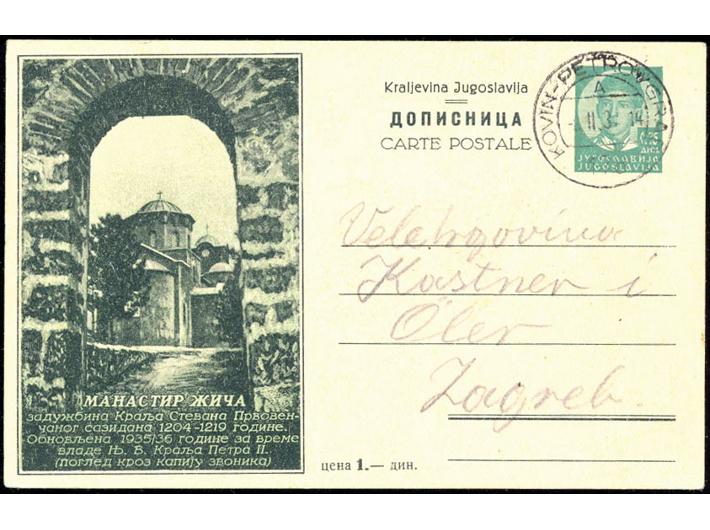 Kraljevina Jugoslavija
ДОПИСНИЦА
CARTE POSTALE
KOVIN-PETROVGRAD
A
ДИН.
ЈУГОСЛАВИЈА
JUGOSLAVIJA
Veletrgovina
Kastner i
Öler
Zagreb
МАНАСТИР ЖИЧА
задужбина Краља Стевана Првовен-
чаног сазидана 1204-1219 године.
Обновљена 1935/36 године за време
владе Њ. В. Краља Петра II.
(поглед кроз капију звоника)
цена 1.— дин.